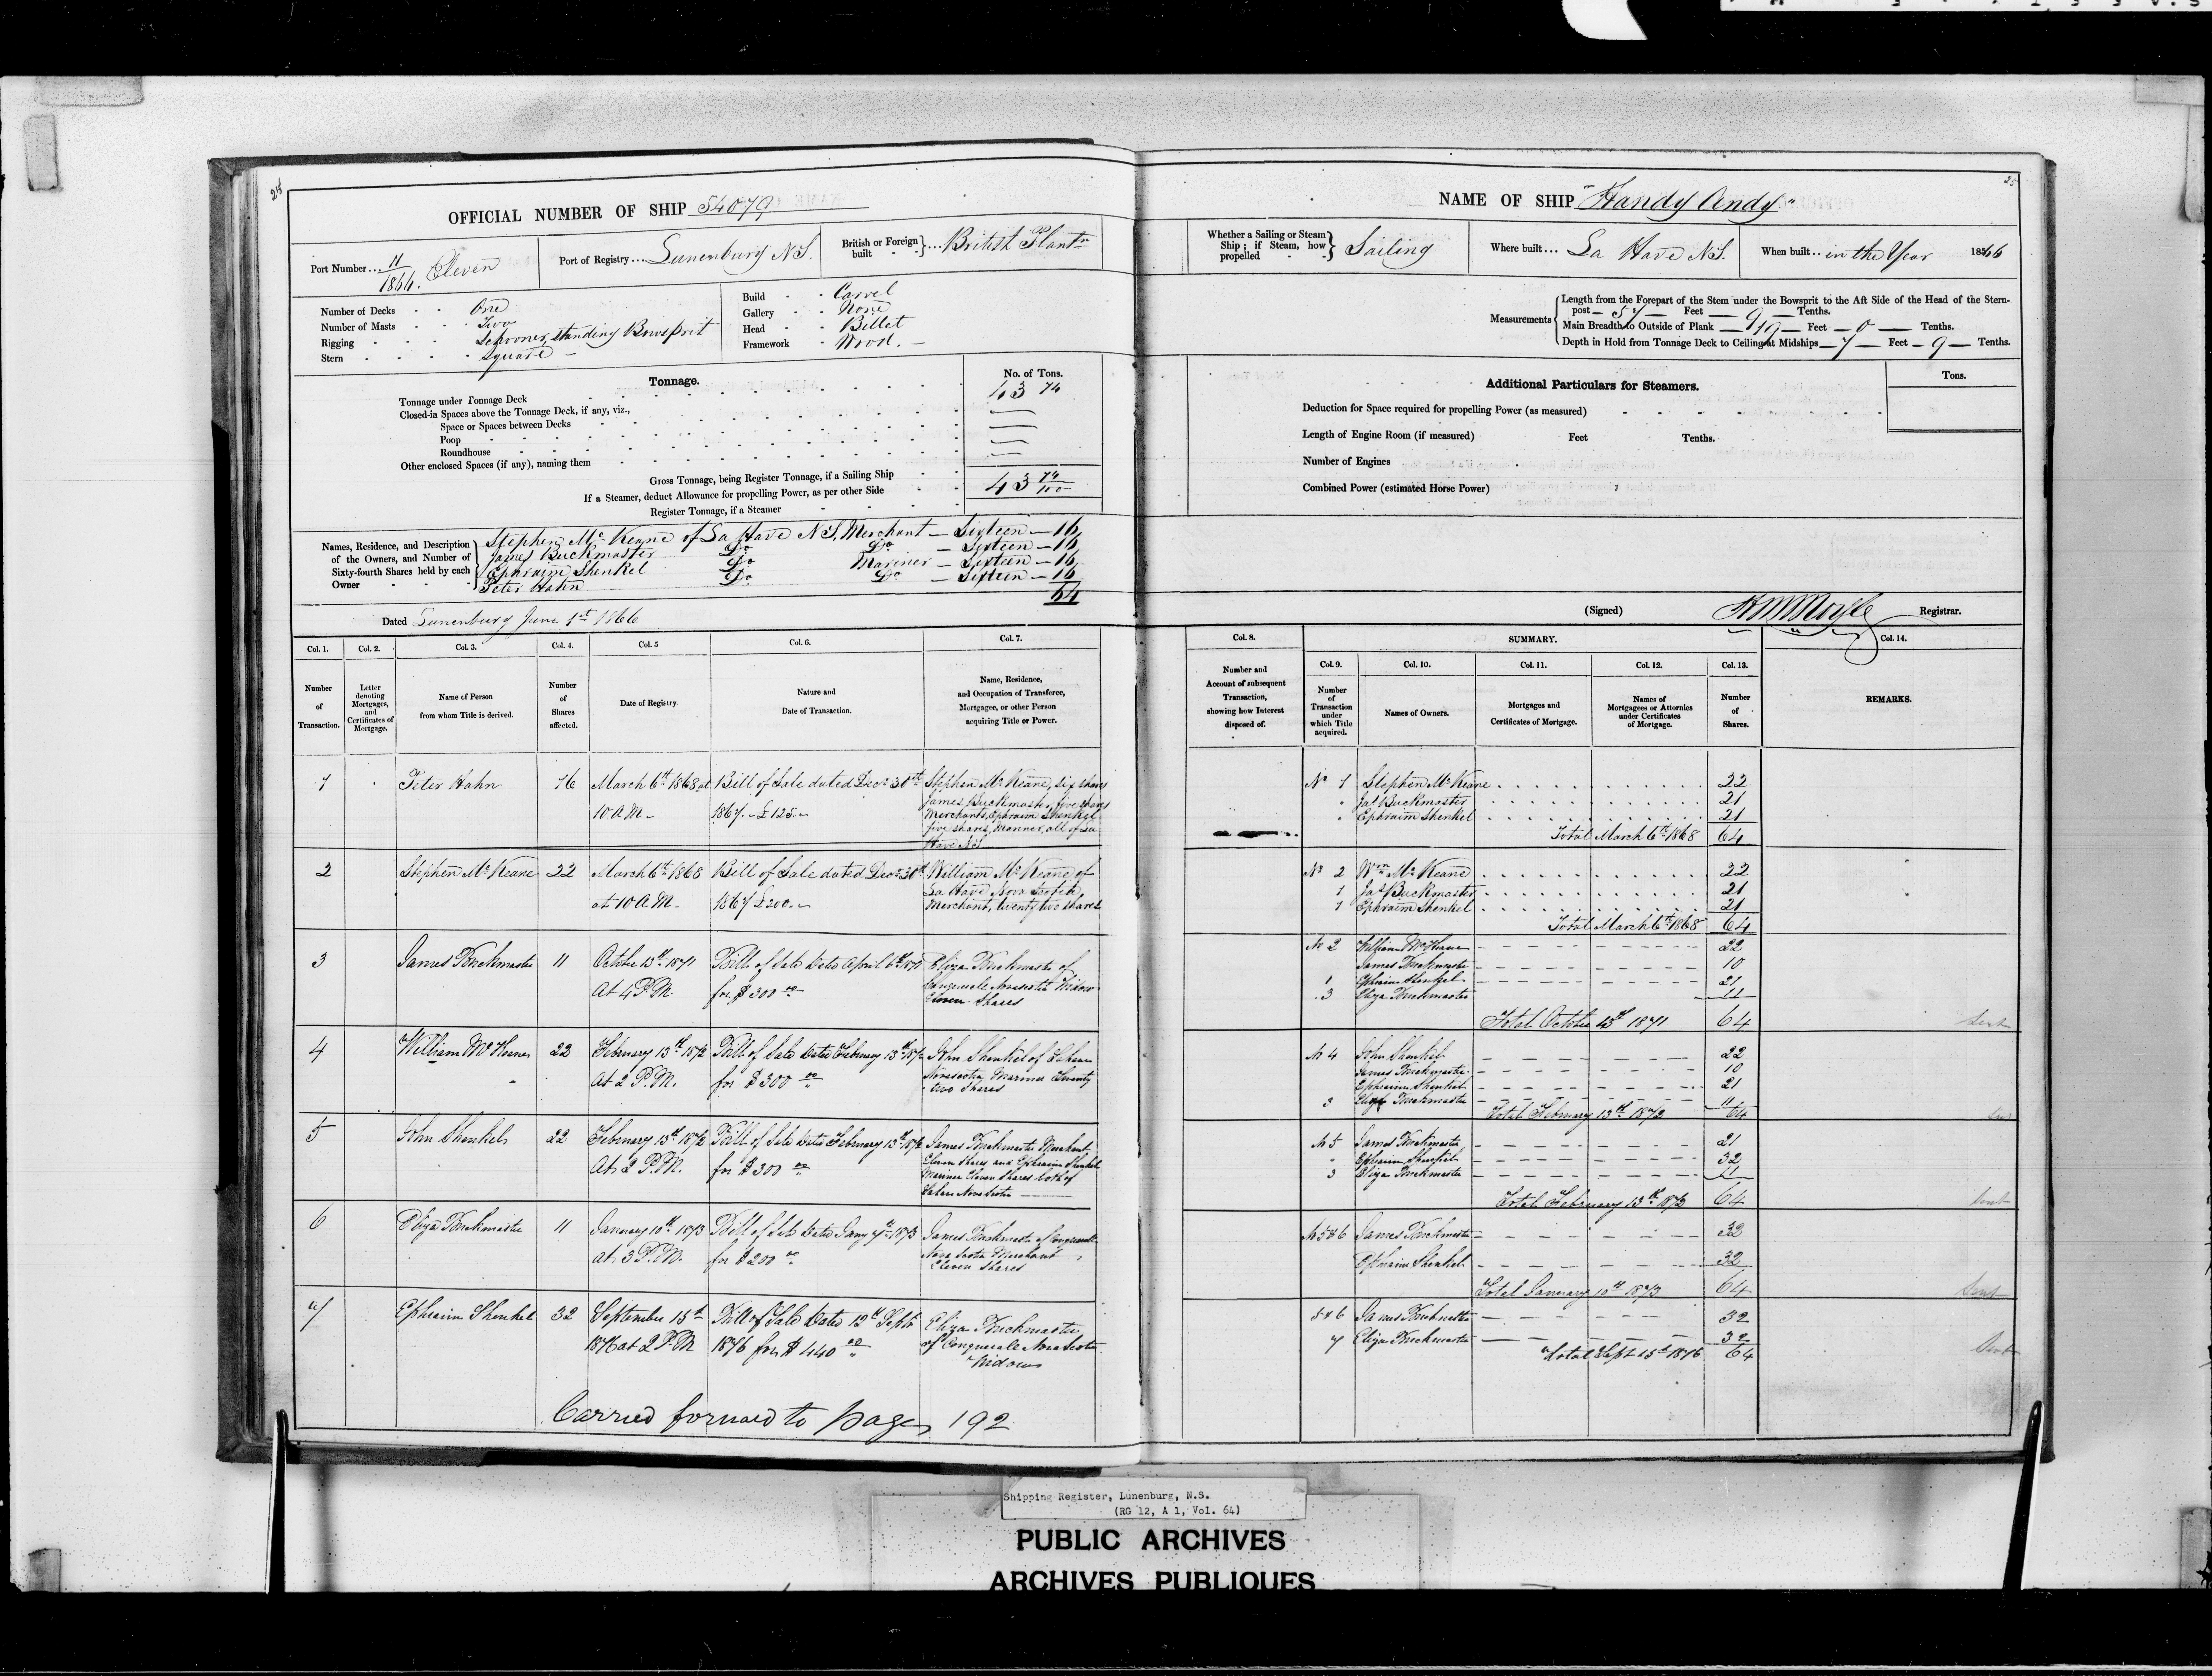 24
OFFICIAL NUMBER OF SHIP 54079
Port Number... 11/1866. Eleven
Port of Registry... Lunenburg N.S.
British or Foreign built } ... British Plantn
Number of Decks One
Number of Masts Two
Rigging Schooner, standing Bowsprit
Stern Square
Build Carvel
Gallery None
Head Billet
Framework Wood.
Tonnage.
No. of Tons.
Tonnage under Tonnage Deck 43 74
Closed-in Spaces above the Tonnage Deck, if any, viz.,
Space or Spaces between Decks
Poop
Roundhouse
Other enclosed Spaces (if any), naming them
Gross Tonnage, being Register Tonnage, if a Sailing Ship 43 74/100
If a Steamer, deduct Allowance for propelling Power, as per other Side
Register Tonnage, if a Steamer
Names, Residence, and Description of the Owners, and Number of Sixty-fourth Shares held by each Owner
Stephen McKeane of La Have N.S. Merchant — Sixteen — 16
James Buckmaster Do Do — Sixteen — 16
Ephraim Shenkel Do Mariner — Sixteen — 16
Peter Hahn Do Do — Sixteen — 16
64
Dated Lunenburg June 1st 1866
Col. 1. Col. 2. Col. 3. Col. 4. Col. 5 Col. 6. Col. 7.
Number of Transaction.
Letter denoting Mortgages, and Certificates of Mortgage.
Name of Person from whom Title is derived.
Number of Shares affected.
Date of Registry
Nature and Date of Transaction.
Name, Residence, and Occupation of Transferee, Mortgagee, or other Person acquiring Title or Power.
1 Peter Hahn 16 March 6th 1868 at Bill of Sale dated Decr 30th Stephen McKeane, six shares
10 A.M. 1867. £125 James Buckmaster, five shares
Merchants, Ephraim Shenkel
five shares, Mariner, all of La
Have N.S.
2 Stephen McKeane 22 March 6th 1868 Bill of Sale dated Decr 30th William McKeane of
at 10 A.M. 1867 £200 La Have Nova Scotia
Merchant, twenty two shares
3 James Buckmaster 11 October 13th 1871 Bill of Sale Dated April 6th 1871 Eliza Buckmaster of
At 4 P.M. for $300 00 Conquerall Novascotia Widow
Eleven Shares
4 William McKeane 22 February 13th 1872 Bill of Sale Dated February 13th 1872 John Shenkel of Lahave
At 2 P.M. for $300 00 Novascotia Mariner Twenty
two Shares
5 John Shenkel 22 February 13th 1872 Bill of Sale Dated February 13th 1872 James Buckmaster Merchant
At 2 P.M. for $300 00 Eleven Shares and Ephraim Shenkel
Mariner Eleven Shares both of
Lahave Nova Scotia
6 Eliza Buckmaster 11 January 10th 1873 Bill of Sale Dated Jany 7th 1873 James Buckmaster of Conquerall
at 3 P.M. for $200 00 Nova Scotia Merchant
Eleven Shares
7 Ephraim Shenkel 32 September 15th Bill of Sale Dated 12th Septr Eliza Buckmaster
1876 at 2 P.M 1876 for $440 00 of Conquerall Nova Scotia
Widow
Carried forward to page 192
25
NAME OF SHIP "Handy Andy"
Whether a Sailing or Steam Ship; if Steam, how propelled } Sailing
Where built... La Have N.S.
When built.. in the Year 1866
Measurements
Length from the Forepart of the Stem under the Bowsprit to the Aft Side of the Head of the Stern-
post — 57 — Feet — 9 — Tenths.
Main Breadth to Outside of Plank — 19 — Feet — 0 — Tenths.
Depth in Hold from Tonnage Deck to Ceiling at Midships — 7 — Feet — 9 — Tenths.
Additional Particulars for Steamers.
Tons.
Deduction for Space required for propelling Power (as measured)
Length of Engine Room (if measured) Feet Tenths.
Number of Engines
Combined Power (estimated Horse Power)
(Signed) Registrar.
Col. 8. SUMMARY. Col. 14.
Col. 9. Col. 10. Col. 11. Col. 12. Col. 13.
Number and Account of subsequent Transaction, showing how Interest disposed of.
Number of Transaction under which Title acquired.
Names of Owners.
Mortgages and Certificates of Mortgage.
Names of Mortgagees or Attornies under Certificates of Mortgage.
Number of Shares.
REMARKS.
No 1 Stephen McKeane 22
" Jas Buckmaster 21
" Ephraim Shenkel 21
Total March 6th 1868 64
No 2 Wm McKeane 22
1 Jas Buckmaster 21
1 Ephraim Shenkel 21
Total March 6th 1868 64
No 2 William McKeane 22
James Buckmaster 10
1 Ephraim Shenkel 21
3 Eliza Buckmaster 11
Total October 13th 1871 64 Sent
No 4 John Shenkel 22
James Buckmaster 10
Ephraim Shenkel 21
3 Eliza Buckmaster 11
Total February 13th 1872 64 Sent
No 5 James Buckmaster 21
" Ephraim Shenkel 32
3 Eliza Buckmaster 11
Total February 13th 1872 64 Sent
No 5&6 James Buckmaster 32
Ephraim Shenkel 32
Total January 10th 1873 64 Sent
5&6 James Buckmaster 32
7 Eliza Buckmaster 32
Total Sept 15th 1876 64 Sent
Shipping Register, Lunenburg, N.S.
(RG 12, A 1, Vol. 64)
PUBLIC ARCHIVES
ARCHIVES PUBLIQUES